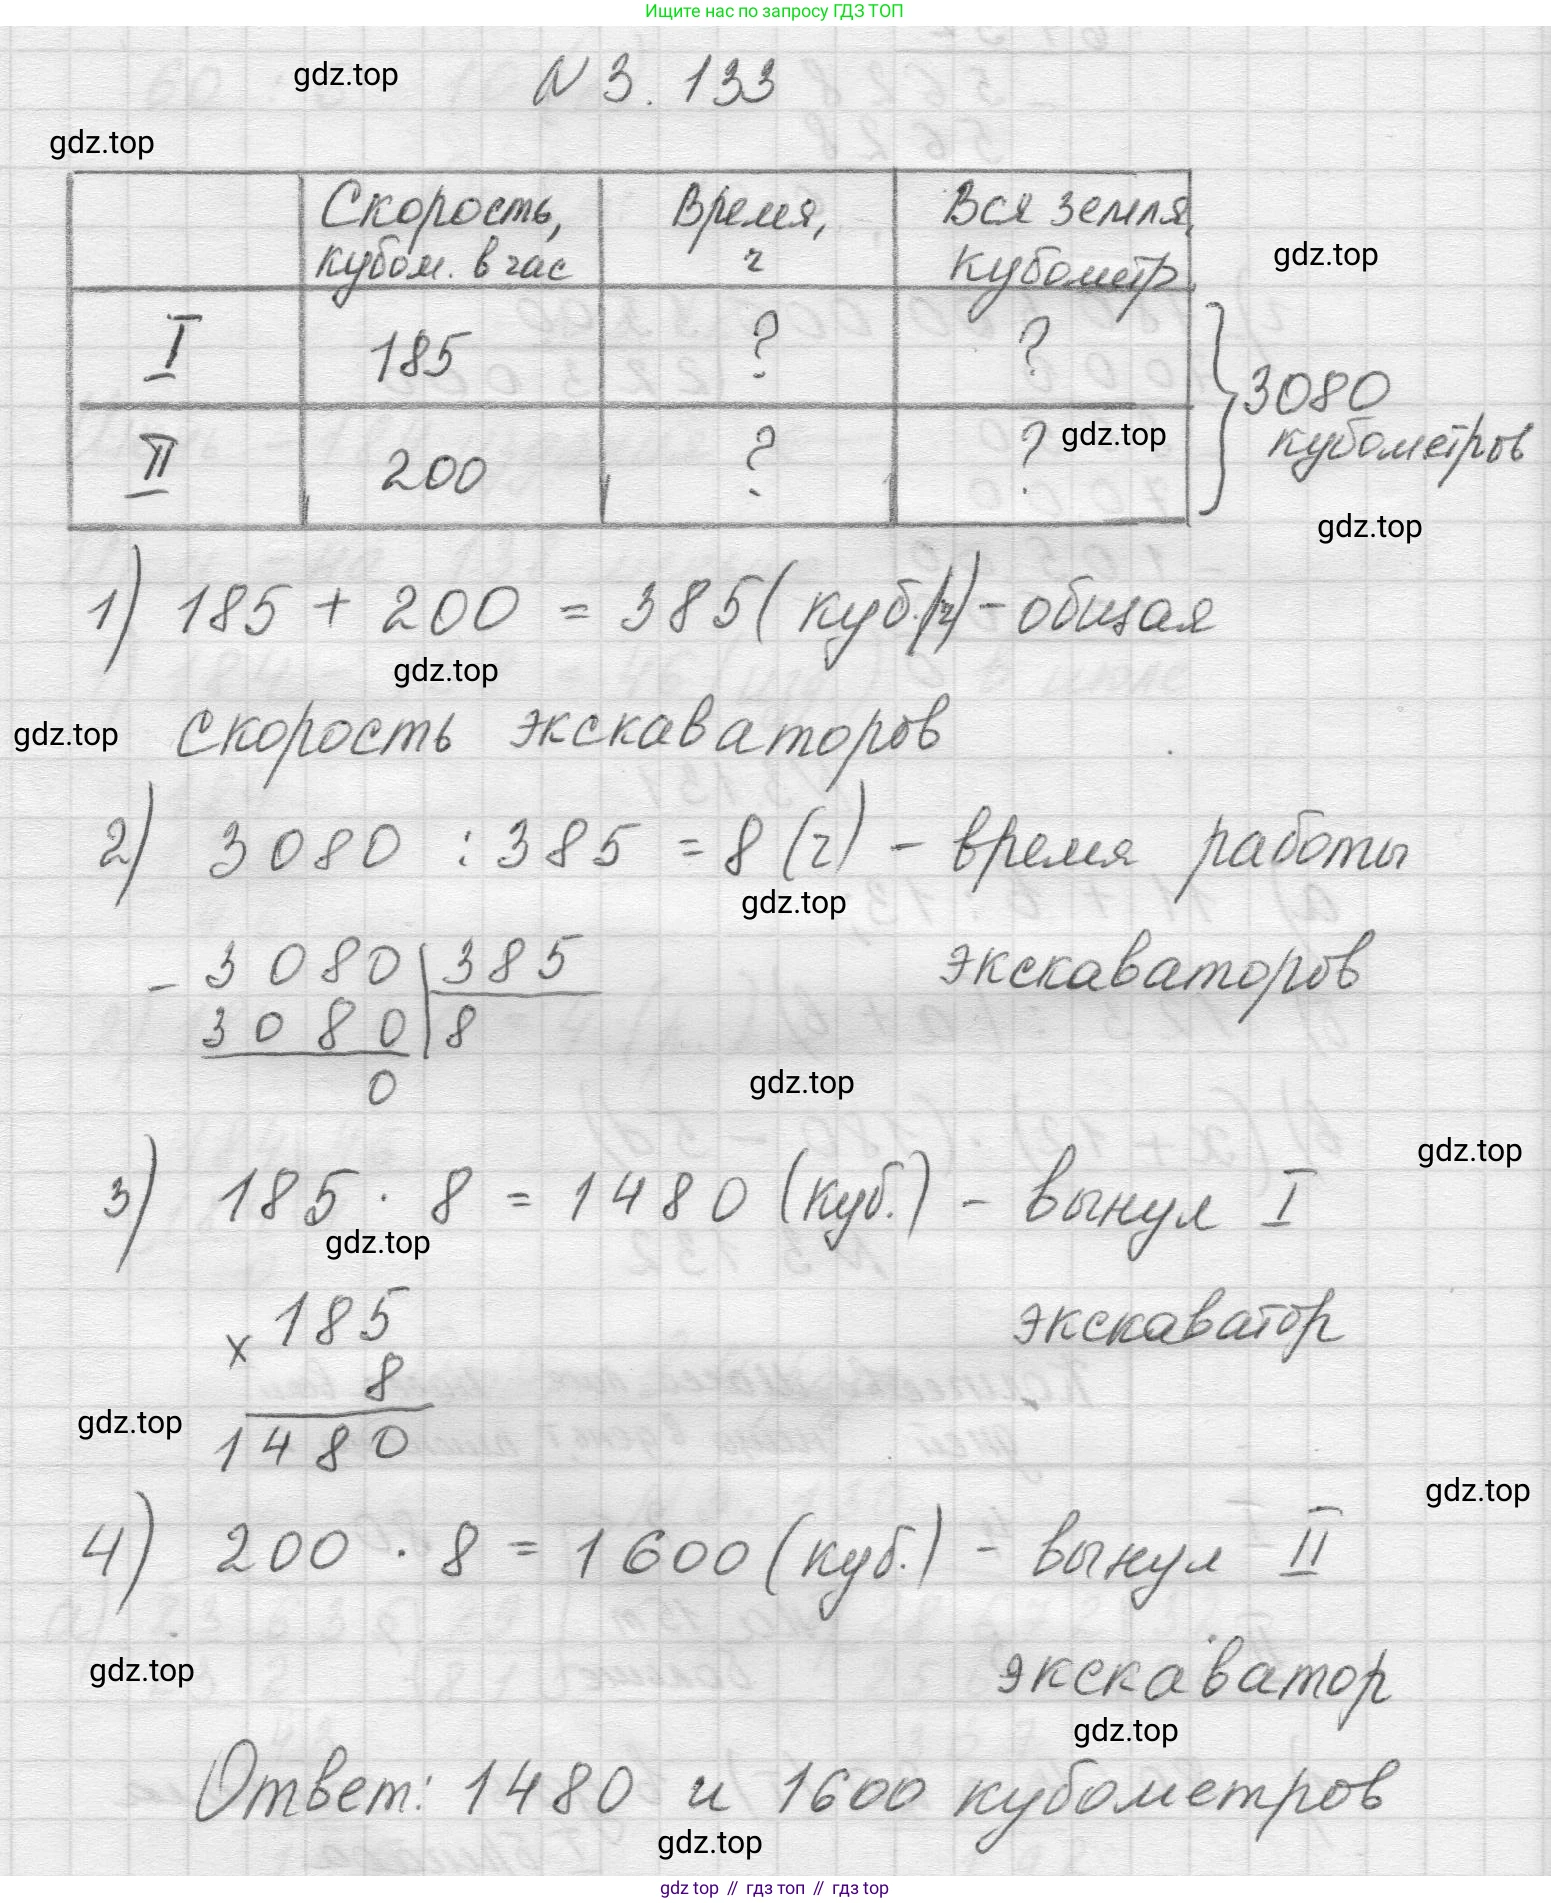 Ищите нас по запросу ГДЗ ТОП
gdz.top
N 3. 133
gdz.top
Скорость, Время, Вся земля,
кубом. в час ч кубометр
gdz.top
I 185 ? ?
3080
кубометров
II 200 ? ?
gdz.top
gdz.top
1) 185 + 200 = 385 (куб./ч) - общая
gdz.top
скорость экскаваторов
gdz.top
2) 3080 : 385 = 8 (ч) - время работы
gdz.top
экскаваторов
- 3080 | 385
3080 | 8
0
gdz.top
gdz.top
3) 185 · 8 = 1480 (куб.) - вынул I
gdz.top
экскаватор
× 185
8
1480
gdz.top
gdz.top
4) 200 · 8 = 1600 (куб.) - вынул II
экскаватор
gdz.top
gdz.top
Ответ: 1480 и 1600 кубометров
gdz.top
gdz top // гдз топ // гдз top